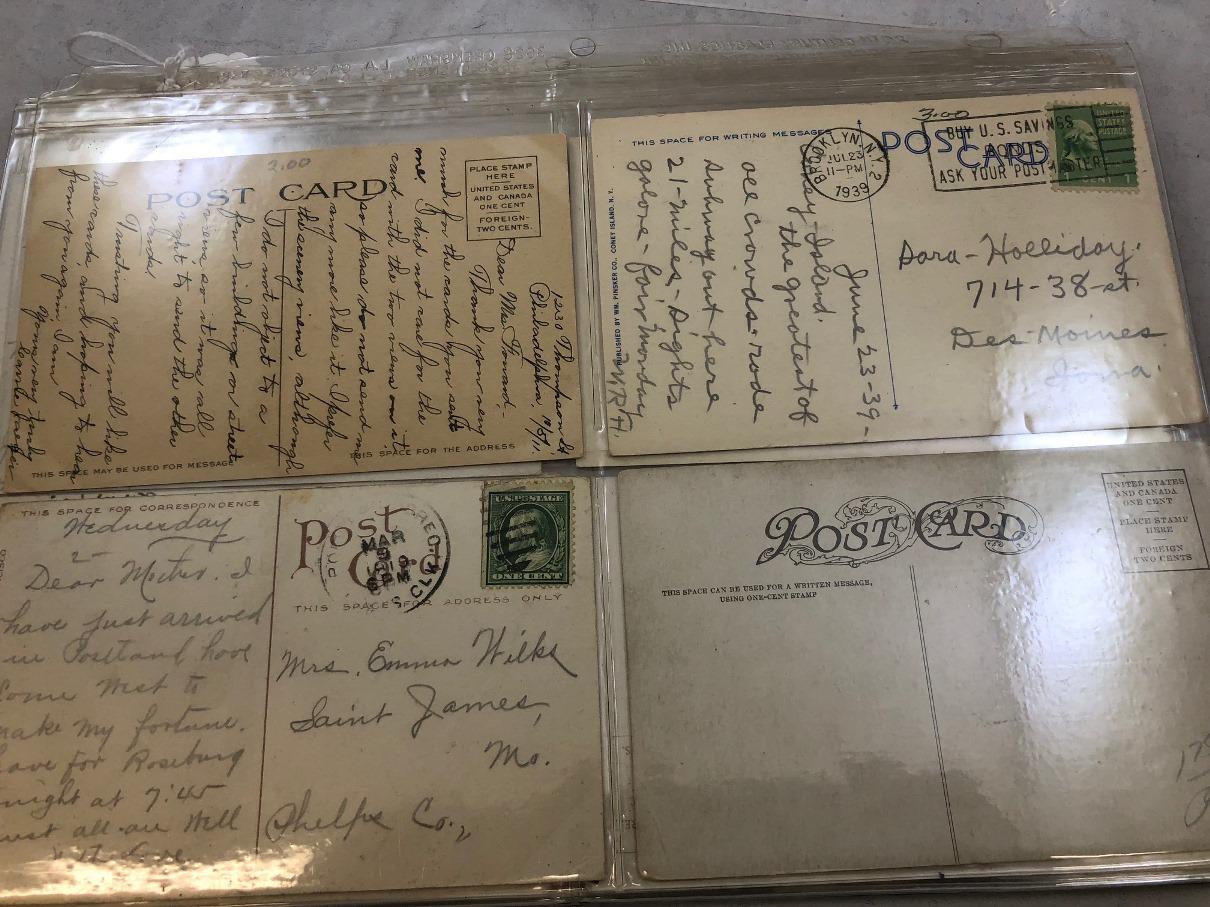 3.00
POST CARD
PLACE STAMP
HERE
UNITED STATES
AND CANADA
ONE CENT
FOREIGN-
TWO CENTS.
1230 Thompson St
Philadelphia
Dear Mr.
Thank you very
much for the cards you sent
me I did not care for the
card with the two men on it
so please do not send me
any more like it I prefer
the scenery views, although
I do not object to a
few buildings or street
views so it was all
right to send the other
Trusting you will like
these cards, and hoping to hear
from you again I am
Yours very truly
THIS SPACE MAY BE USED FOR MESSAGE
THIS SPACE FOR THE ADDRESS
THIS SPACE FOR WRITING MESSAGES
3.00
POST
CARD
BROOKLYN, N.Y. 2
JUL 23
11-PM
1939
BUY U.S. SAVINGS
BONDS
ASK YOUR POSTMASTER
UNITED
STATES
POSTAGE
PUBLISHED BY WM. PINSKER CO., CONEY ISLAND, N. Y.
June 23-39-
Island.
the greatest of
all crowds- rode
subway out here
21-miles-Sights
galore-
W.R.H.
Dora-Holliday.
714-38-st.
Des-Moines
Iowa.
THIS SPACE FOR CORRESPONDENCE
Wednesday
2-
Dear Mother. I
have just arrived
in Portland have
Come West to
make my fortune.
for Roseburg
night at 7:45
all are Well
Post
Card
MAR
9
PM
U.S. POSTAGE
ONE CENT
THIS SPACE FOR ADDRESS ONLY
Mrs. Emma Wilks
Saint James,
Mo.
Phelps Co.,
POST CARD
UNITED STATES
AND CANADA
ONE CENT
PLACE STAMP
HERE
FOREIGN
TWO CENTS
THIS SPACE CAN BE USED FOR A WRITTEN MESSAGE,
USING ONE-CENT STAMP